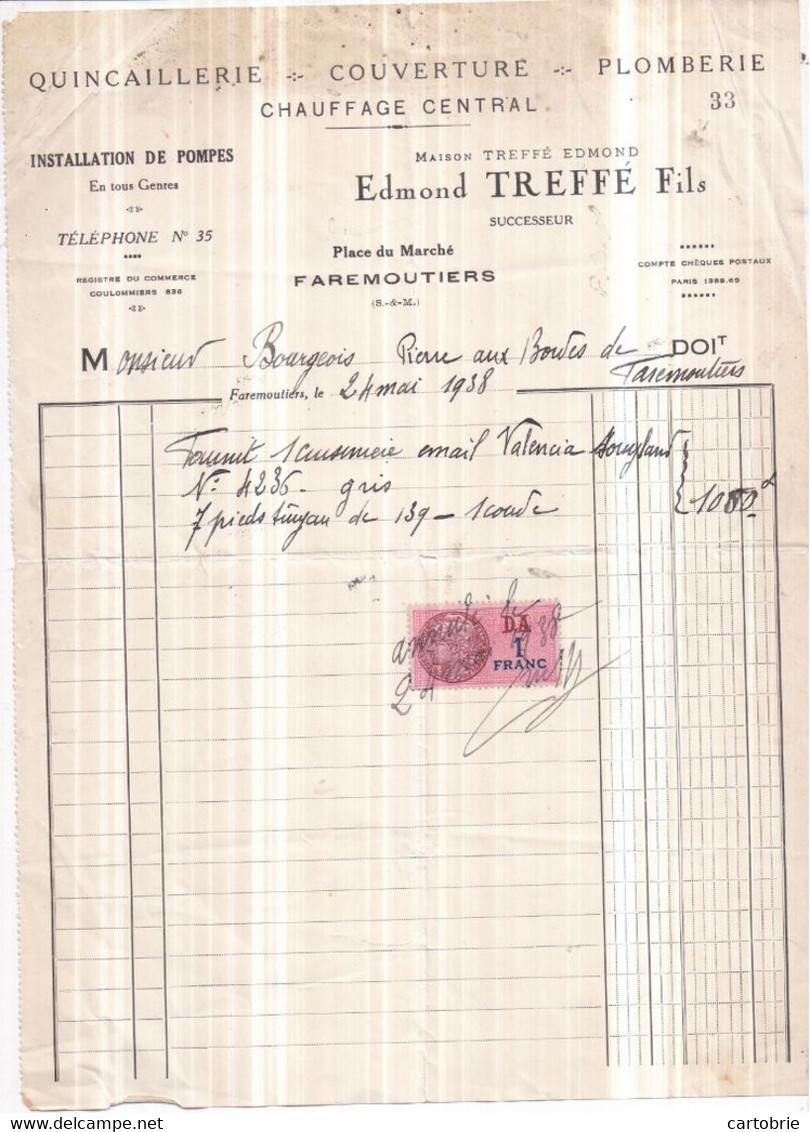 QUINCAILLERIE -:- COUVERTURE -:- PLOMBERIE
CHAUFFAGE CENTRAL
33
INSTALLATION DE POMPES
En tous Genres
TÉLÉPHONE N° 35
REGISTRE DU COMMERCE
COULOMMIERS 636
MAISON TREFFÉ EDMOND
Edmond TREFFÉ Fils
SUCCESSEUR
Place du Marché
FAREMOUTIERS
(S.-&-M.)
COMPTE CHÈQUES POSTAUX
PARIS 1388.69
Monsieur Bourgeois Pierre aux Bordes de DOIT
Faremoutiers
Faremoutiers, le 24 mai 1938
Fournit 1 cuisinière email Valencia
N° 4236 - gris
1080
7 pieds tuyau de 139 - 1 coude
D.A
1
FRANC
24 1938
cartobrie